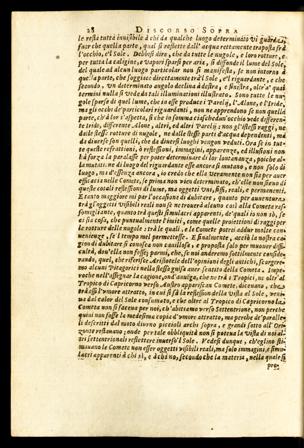 28 DISCORSO SOPRA
le resta tutta invisibile à chi da qualche luogo determinato vi guarda,
fuor che quella parte, qual si reflette dall'acqua rettamente trapposta fra
l'occhio, e'l Sole. Debbesi dire, che da tutte le nugole, e loro rotture, e
per tutta la caligine, e vapori sparsi per aria, si diffonde il lume del Sole,
del quale ad alcun luogo particolare non si manifesta, se non intorno à
quella parte, che soggiace direttamente tra'l Sole, e'l riguardante, e che
secondo, un determinato angolo declina à destra, e sinistra, oltr'a' quai
termini nulla si vede da tali illuminazioni illustrato. Sono tutte le
nugole sparse di quel lume, che in esse produce i Parelij, l'Alone, e l'Iride,
ma gli occhi de' particolari riguardanti, non ne apprendono se non quella
parte, ch'à lor s'aspetta, si che in somma ciaschedun'occhio vede differen-
te Iride, differente Alone, altri, ed altri Parelij: non gl'istessi raggi, ne
dalle stesse rotture di nugole, nè dalle stesse parti d'acque dependenti, ma
da diverse
queste refrattioni, ò reflessioni, immagini, apparenze, ed illusioni non
hà forza la paralasse per poter determinare le lor lontananze, poiche al-
la mutaz. ne di luogo del riguardante ancor esse si mutano, e non solo di
luogo, ma d'essenza ancora, io credo che ella Veramente non sia per auer
efficacia nelle Comete, se prima non vien determinato, ch'elle non sieno di
queste cotali reflessioni di lume, ma oggetti vni, fissi, reali, e permanenti.
E tanto maggiore mi par l'occasione di dubitare, quanto per auuentura
tra gl'oggetti visibili reali non si troverà alcuno così alla Cometa ras-
somigliante, quanto tra questi simulacri apparenti, de' quali io non sò, se
sia cosa, che puntualmente l'imiti, come quelle proiettioni di raggi per
le rotture delle nugole: trà le quali, e le Comete potrei addur molte con-
uenienze, se'l tempo mel permettesse. E finalmente, acciò la nostra ca-
gion di dubitare si conosca non cauillosa, e proposta solo per muouer diffi-
cultà, dou'ella non fosse; parmi, che, se noi andremo sottilmente conside-
rando, quel, che scriue Aristotile dell'opinioni degli antichi, scorgere-
mo alcuni Pitagorici nella stessa guisa auer sentito della Cometa. Impe-
roche nell'assegnar la cagione, ond'auuenga, che nè trà i Tropici, ne oltre'l
Tropico di Capricorno verso Austro apparisca Comete, diceuano, che
trà essi l'vmore attratto, in cui si fà la reflession della Vista al Sole, veni-
ua dal calor del Sole consumato, e che oltre al Tropico di Capricorno la
Cometa non si facena per noi, ch'abitiamo verso Settentrione, non perche
quiui non fusse la medesima copia d'vmore attratto, ma perche de' paralle-
li descritti dal moto diurno piccioli archi sopra, e grandi sotto all'Ori-
zonte restauano; onde per tale obbliquità non si poteua la vista di noi al-
tri settentrionali reflettere inuerso'l Sole. Vedesi dunque, ch'eglino sti-
mauano la Cometa non esser oggetti visibili reali, ma solo immagini, e simu-
lacri apparenti à chi sì, e à chi nò, secondo che la materia, nella quale si